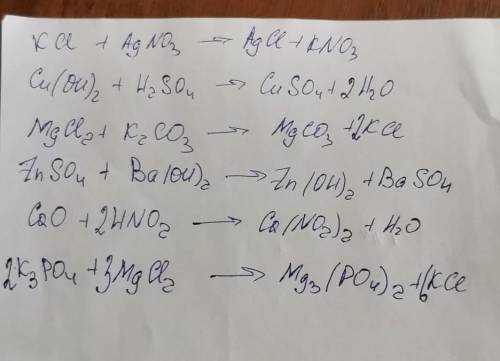 KCl + AgNO₃ → AgCl + KNO₃
Cu(OH)₂ + H₂SO₄ → CuSO₄ + 2H₂O
MgCl₂ + K₂CO₃ → MgCO₃ + 2KCl
ZnSO₄ + Ba(OH)₂ → Zn(OH)₂ + BaSO₄
CaO + 2HNO₂ → Ca(NO₂)₂ + H₂O
2K₃PO₄ + 3MgCl₂ → Mg₃(PO₄)₂ + 6KCl